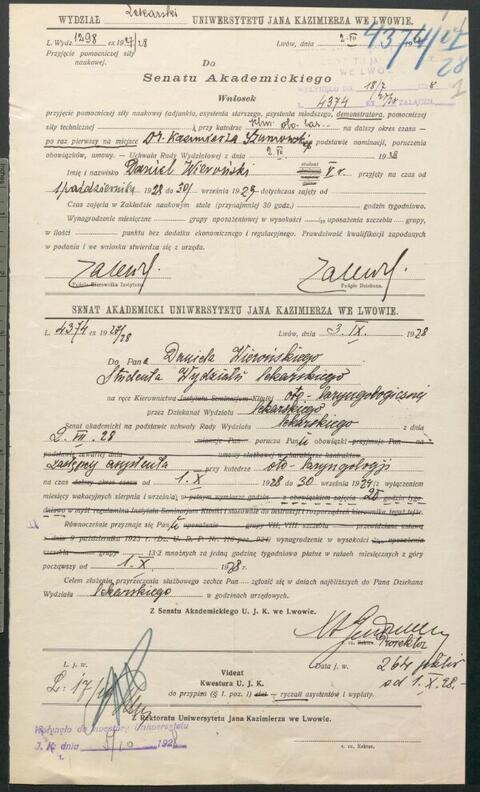 WYDZIAŁ Lekarski UNIWERSYTETU JANA KAZIMIERZA WE LWOWIE.
L. Wydz. 1298 ex 1927/28 Lwów, dnia 2. VII 192
Przyjęcie pomocniczej siły
naukowej.
4374/27/28
WE LWOWIE
18/7
L. 4374
Do
Senatu Akademickiego
Wniosek
przyjęcie pomocniczej siły naukowej (adjunkta, asystenta starszego, asystenta młodszego, demonstratora, pomocniczej
siły technicznej przy katedrze na dalszy okres czasu —
po raz pierwszy na miejsce Dr. Kazimierza Szumowskiego podstawie nominacji, poruczenia
obowiązków, umowy. – Uchwała Rady Wydziałowej z dnia 2. VII 1928
Imię i nazwisko Daniel Wieroński student V r. przyjęty na czas od
1 października 1928 do 30/ września 1929 dotychczas zajęty od
Czas zajęcia w Zakładzie naukowym stale (przynajmniej 30 godz.) godzin tygodniowo.
Wynagrodzenie miesięczne grupy uposażeniowej w wysokości uposażenia szczebla grupy,
w ilości punktu bez dodatku ekonomicznego i regulacyjnego. Prawdziwość kwalifikacji zapodanych
w podaniu i we wniosku stwierdza się z urzędu.
Podpis Kierownika Instytutu. Podpis Dziekana.
SENAT AKADEMICKI UNIWERSYTETU JANA KAZIMIERZA WE LWOWIE.
L. 4374 ex 1927/28 Lwów, dnia 3. IX. 1928
Do Pana Daniela Wierońskiego
Studenta Wydziału Lekarskiego
na ręce Kierownictwa Instytutu Seminarjum Kliniki oto-laryngologicznej
przez Dziekanat Wydziału Lekarskiego
Senat akademicki na podstawie uchwały Rady Wydziału Lekarskiego z dnia
2. VII. 28 mianuje Pan porucza Panu obowiązki przyjmuje Pan na
podstawie zawartej dnia umowy służbowej w charakterze kontraktow.
Zastępcy asystenta przy katedrze oto-laryngologji
na czas dalszy okres czasu 1. X 1928 do 30 września 1929 (z wyłączeniem
miesięcy wakacyjnych sierpnia i września) w pełnym wymiarze godzin z obowiązkiem zajęcia 20 godzin tygo-
dniowo w myśl regulaminu Instytutu Seminarjum Kliniki i stosownie do instrukcji i rozporządzeń kierownika tegoż tejże.
Równocześnie przyznaje się Panu uposażenie grupy VII, VIII szczebla przewidziane ustawą
z dnia 9 października 1923 r. (Dz. U. R. P. Nr. 116 poz. 924) wynagrodzenie w wysokości uposażenia
szczebla grupy 13·2 mnożnych za jedną godzinę tygodniowo płatne w ratach miesięcznych z góry
począwszy od 1. X 1928
Celem złożenia przyrzeczenia służbowego zechce Pan zgłosić się w dniach najbliższych do Pana Dziekana
Wydziału Lekarskiego w godzinach urzędowych.
Z Senatu Akademickiego U. J. K. we Lwowie.
Prorektor
L. j. w. Data j. w.
Videat
Kwestura U. J. K.
do przypisu (§ 1. poz. 1) etat — ryczałt asystentów i wypłaty.
264 złotych
od 1. X. 28.-
Z Rektoratu Uniwersytetu Jana Kazimierza we Lwowie.
Wpłynęło do kwestury Uniwersytetu
J. K. dnia 5/10 192
z. cz. Rektor.